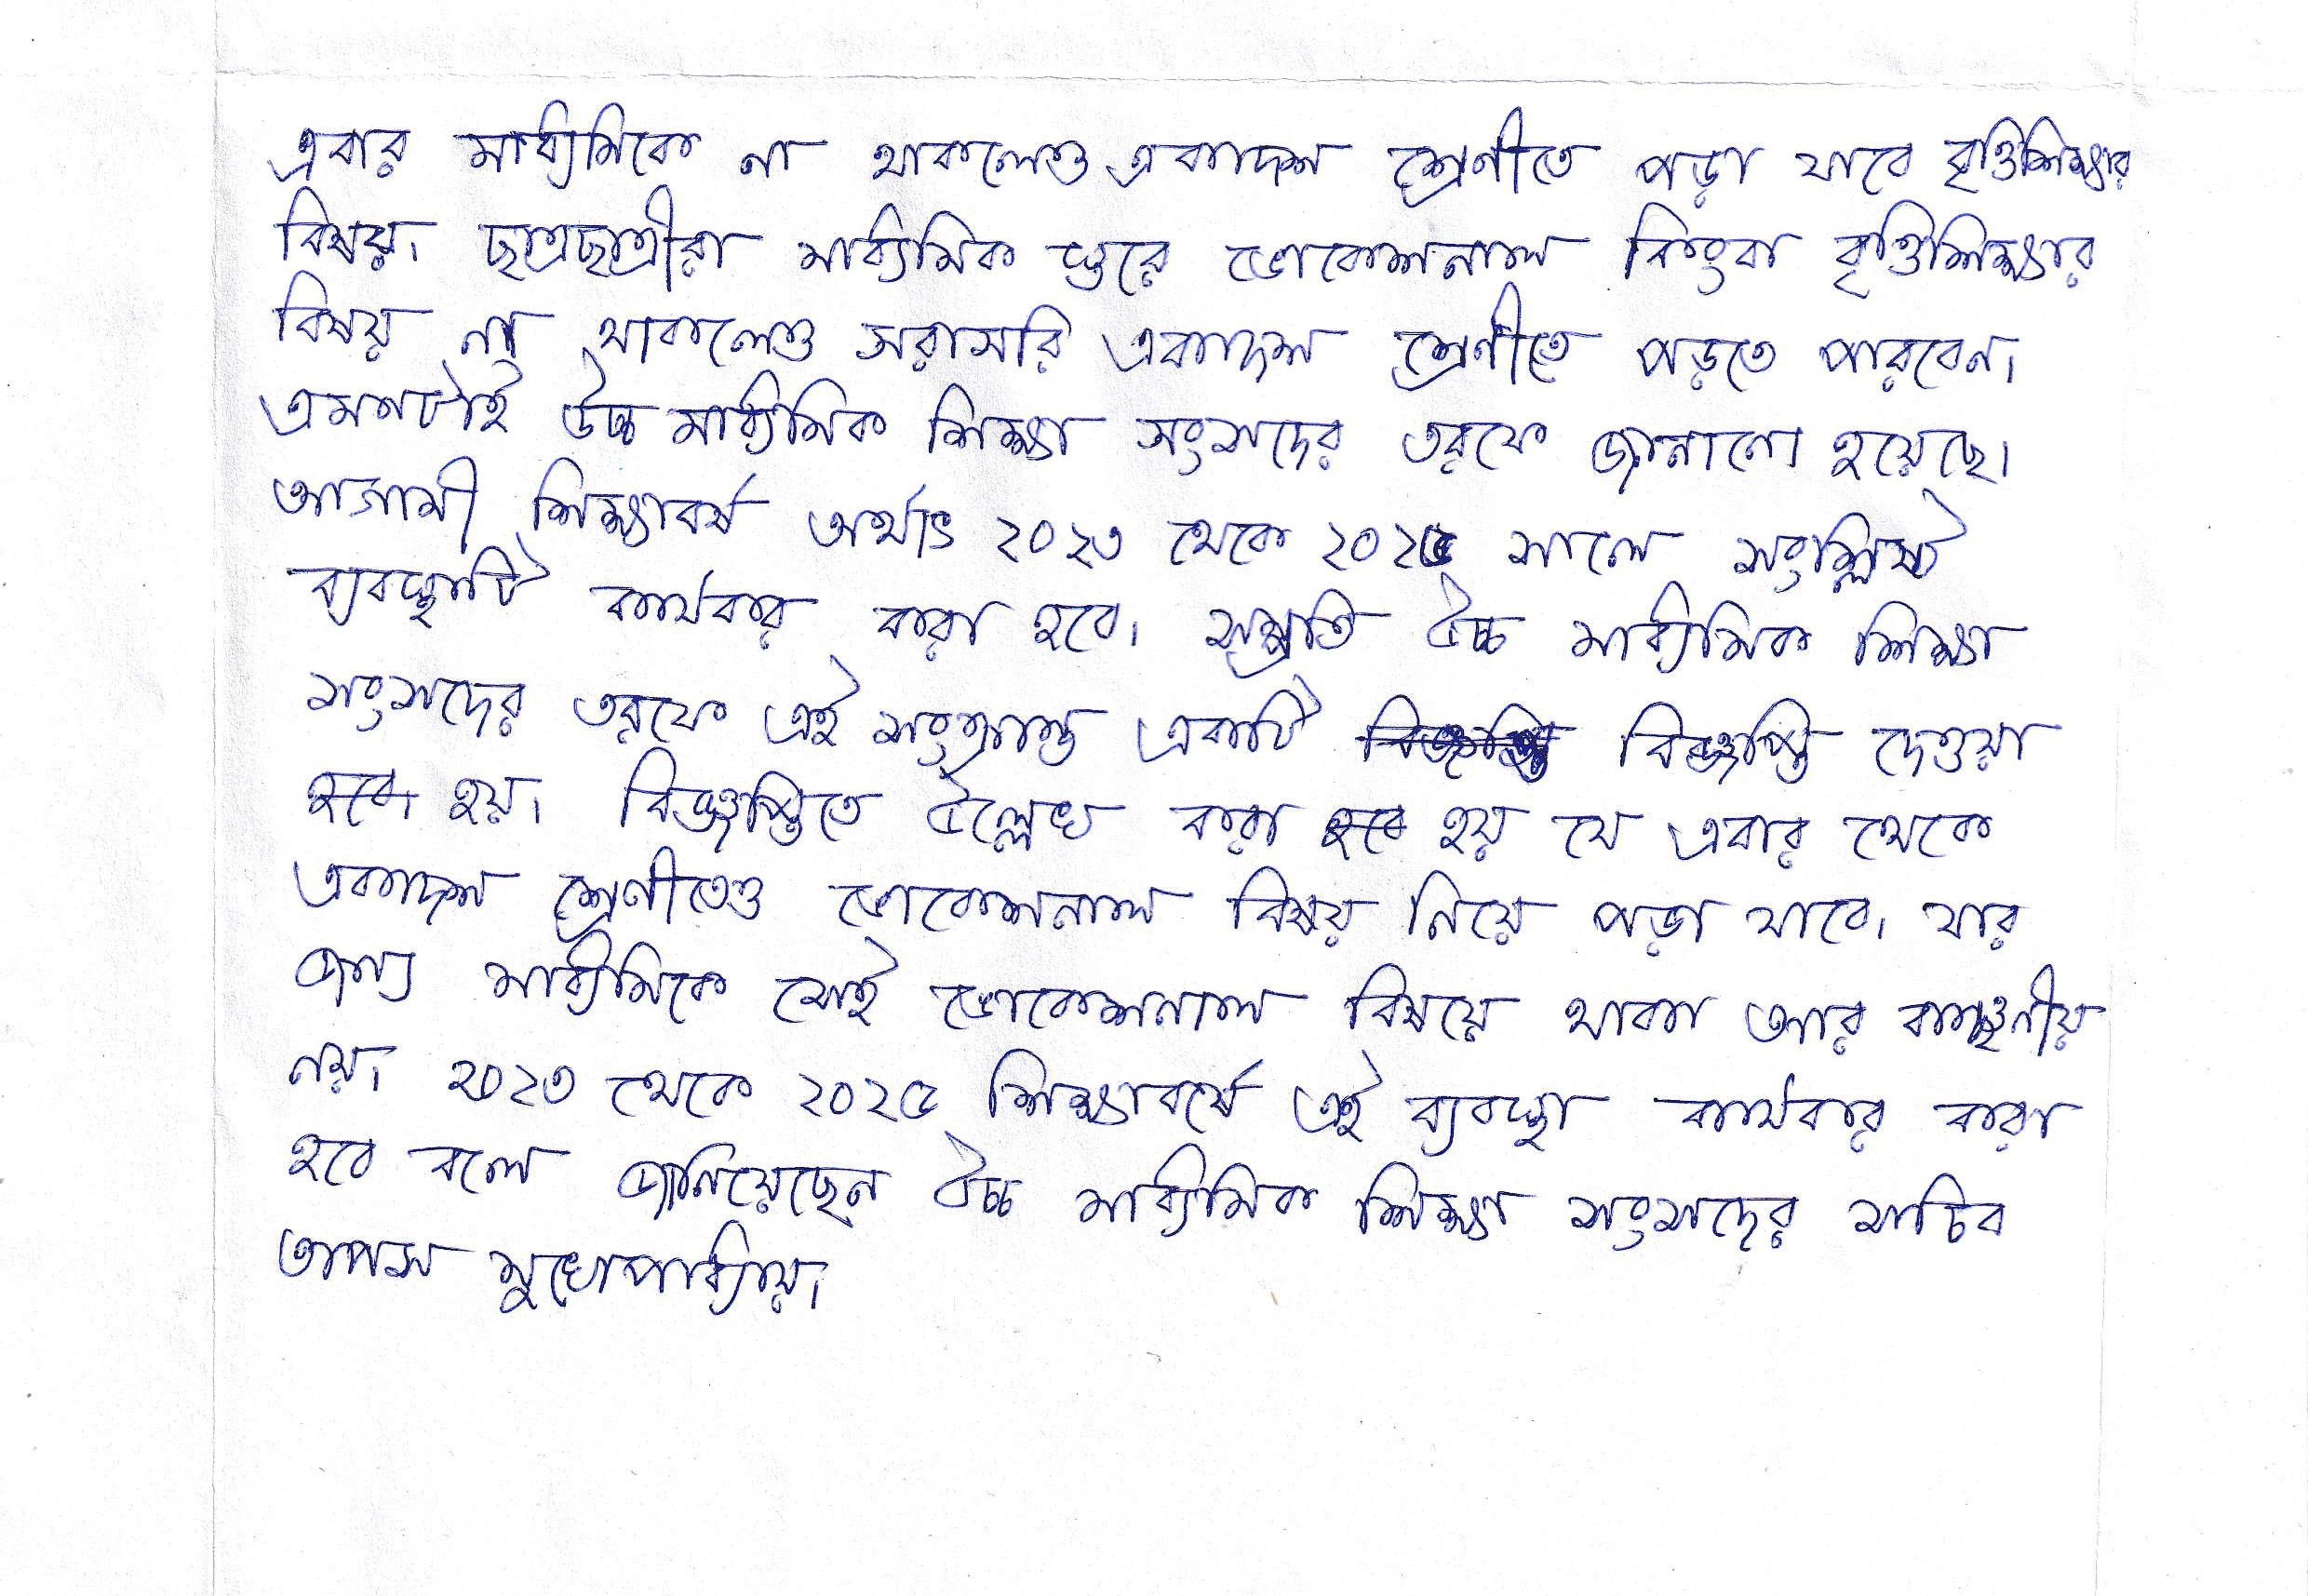 এবার মাধ্যমিকে না থাকলেও একাদশ শ্রেণীতে পড়া যাবে বৃত্তিশিক্ষার
বিষয়। ছাত্রছাত্রীরা মাধ্যমিক স্তরে ভোকেশনাল কিংবা বৃত্তিশিক্ষার
বিষয় না থাকলেও সরাসরি একাদশ শ্রেণীতে পড়তে পারবেন।
এমনটাই উচ্চ মাধ্যমিক শিক্ষা সংসদের তরফে জানানো হয়েছে।
আগামী শিক্ষাবর্ষ অর্থাৎ ২০২৩ থেকে ২০২৫ সালে সংশ্লিষ্ট
ব্যবস্থাটি কার্যকর করা হবে। সম্প্রতি উচ্চ মাধ্যমিক শিক্ষা
সংসদের তরফে এই সংক্রান্ত একটি বিজ্ঞপ্তি দেওয়া
হবে। হয়। বিজ্ঞপ্তিতে উল্লেখ করা হবে হয় যে এবার থেকে
একাদশ শ্রেণীতেও ভোকেশনাল বিষয় নিয়ে পড়া যাবে। যার
জন্য মাধ্যমিকে সেই ভোকেশনাল বিষয়ে থাকা আর বাঞ্ছনীয়
নয়। ২০২৩ থেকে ২০২৫ শিক্ষাবর্ষে এই ব্যবস্থা কার্যকর করা
হবে বলে জানিয়েছেন উচ্চ মাধ্যমিক শিক্ষা সংসদের সচিব
তাপস মুখোপাধ্যায়।